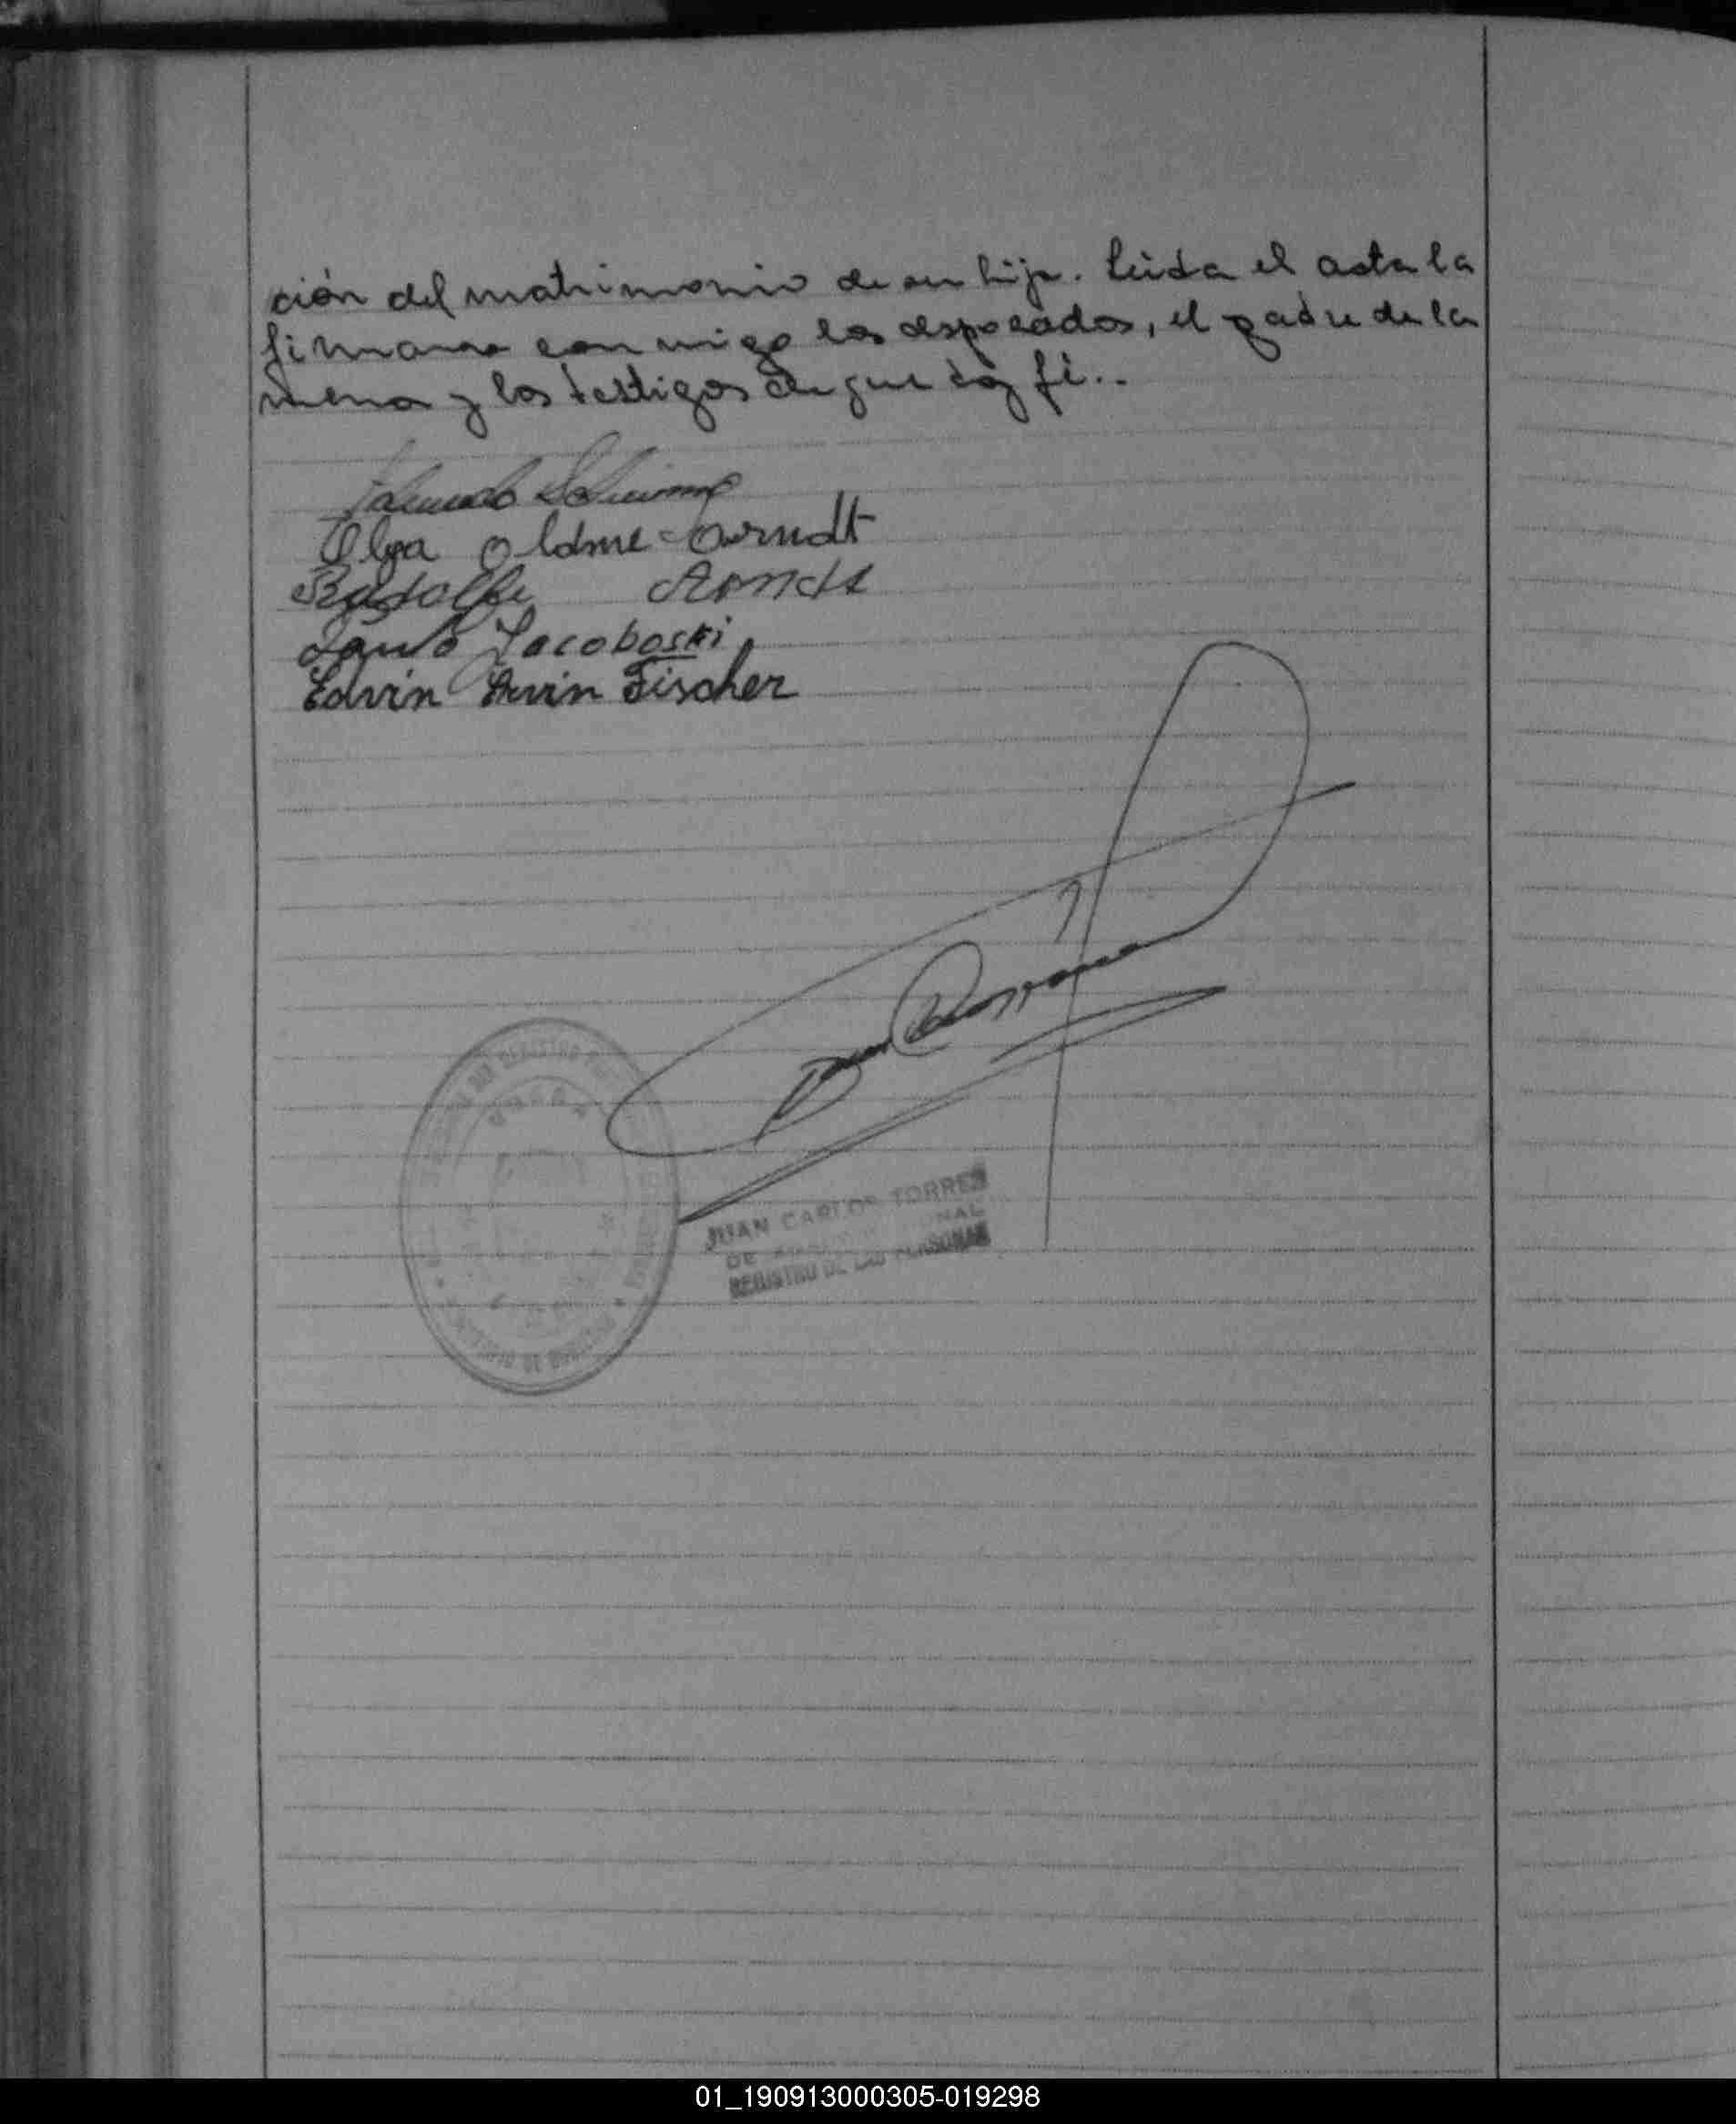 ción del matrimonio de su hija. Leida el acta la
firmaron conmigo los esposados, el padre de la
mena y los testigos de que doy fé..
Olga Oldme Arndt
Rodolfo Arndt
Jacoboski
Edvin Ervin Fischer
JUAN CARLOS TORRES
DE
REGISTRO DE LAS PERSONAS
01_190913000305-019298